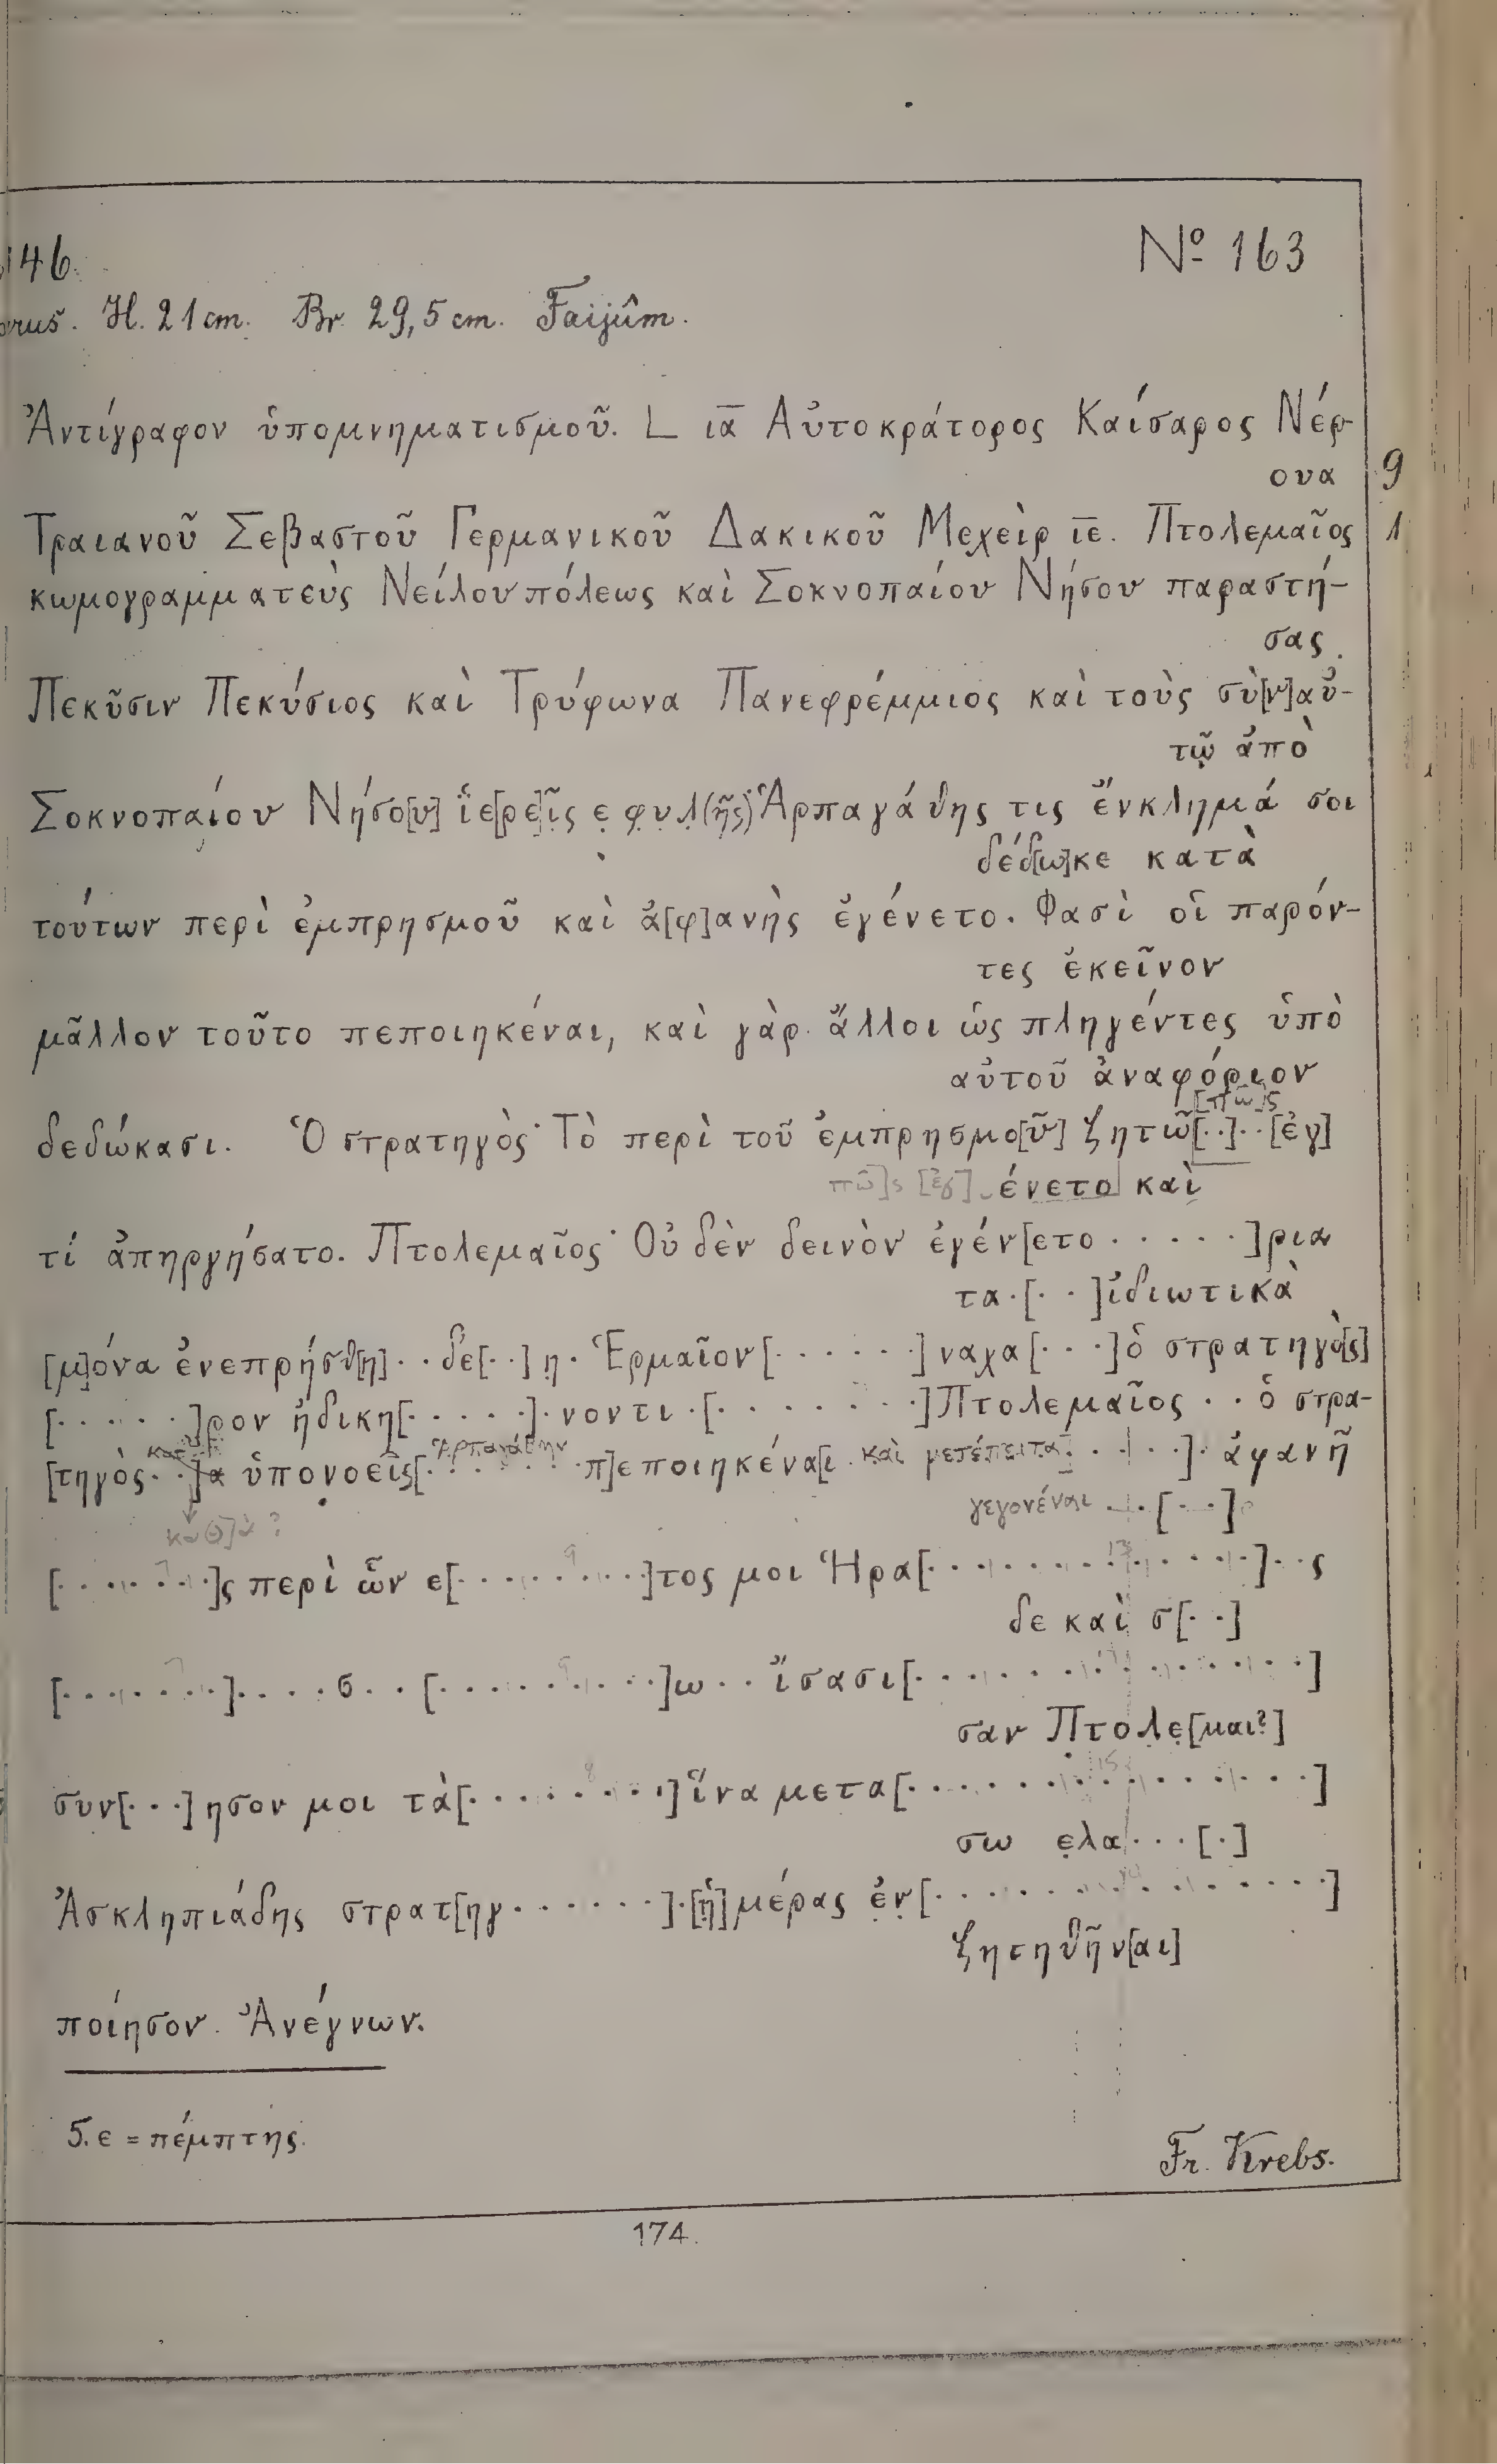 146.
No 163
H. 21 cm. Br. 29,5 cm. Faijûm.
Ἀντίγραφον ὑπομνηματισμοῦ. L ια̅ Αὐτοκράτορος Καίσαρος Νέρ-
ουα
9
Τραιανοῦ Σεβαστοῦ Γερμανικοῦ Δακικοῦ Μεχεὶρ ιε̅. Πτολεμαῖος
1
κωμογραμματεὺς Νείλου πόλεως καὶ Σοκνοπαίου Νήσου παραστή-
σας
Πεκῦσιν Πεκύσιος καὶ Τρύφωνα Πανεφρέμμιος καὶ τοὺς σὺ[ν]αὐ-
τῷ ἀπὸ
Σοκνοπαίου Νήσο[υ] ἱε[ρε]ῖς ε φυλ(ῆς) Ἁρπαγάθης τις ἔνκλημά σοι
δέδ[ω]κε κατὰ
τούτων περὶ ἐμπρησμοῦ καὶ ἀ[φ]ανὴς ἐγένετο. Φασὶ οἱ παρόν-
τες ἐκεῖνον
μᾶλλον τοῦτο πεποιηκέναι, καὶ γὰρ ἄλλοι ὡς πληγέντες ὑπὸ
αὐτοῦ ἀναφόριον
[πῶ]ς
δεδώκασι. Ὁ στρατηγὸς· Τὸ περὶ τοῦ ἐμπρησμο[ῦ] ζητῶ[··]··[ἐγ]
πῶ]ς [ἐγ] ένετο καὶ
τί ἀπηργήσατο. Πτολεμαῖος· Οὐδὲν δεινὸν ἐγέν[ετο ·····]ρια
τα·[··]ἰδιωτικὰ
[μ]όνα ἐνεπρήσθ[η]··δε[··]η· Ἑρμαῖον[······]ναχα[···]ὁ στρατηγὸ[ς]
[·····]ρον ἠδικη[·····]·νοντι·[········]Πτολεμαῖος ·· ὁ στρα-
Ἁρπαγάθην
[τηγὸς··]α ὑπονοεῖς[·······π]εποιηκένα[ι καὶ μετέπειτα ····]· ἀφανῆ
γεγονέναι ··[··]
καθ]ὰ ?
[·······]ς περὶ ὧν ε[·········]τος μοι Ἡρα[·············]··ς
δε καὶ σ[··]
[·······]····σ··[·········]ω·· ἴσασι[···············]
σαν Πτολε[μαι?]
συν[···]ησον μοι τὰ[········]ἵνα μετα[···············]
σω ελα···[·]
Ἀσκληπιάδης στρατ[ηγ······]·[ἡ]μέρας ἐν[··············]
ζητηθῆν[αι]
ποίησον. Ἀνέγνων.
5. ε = πέμπτης.
Fr. Krebs.
174.